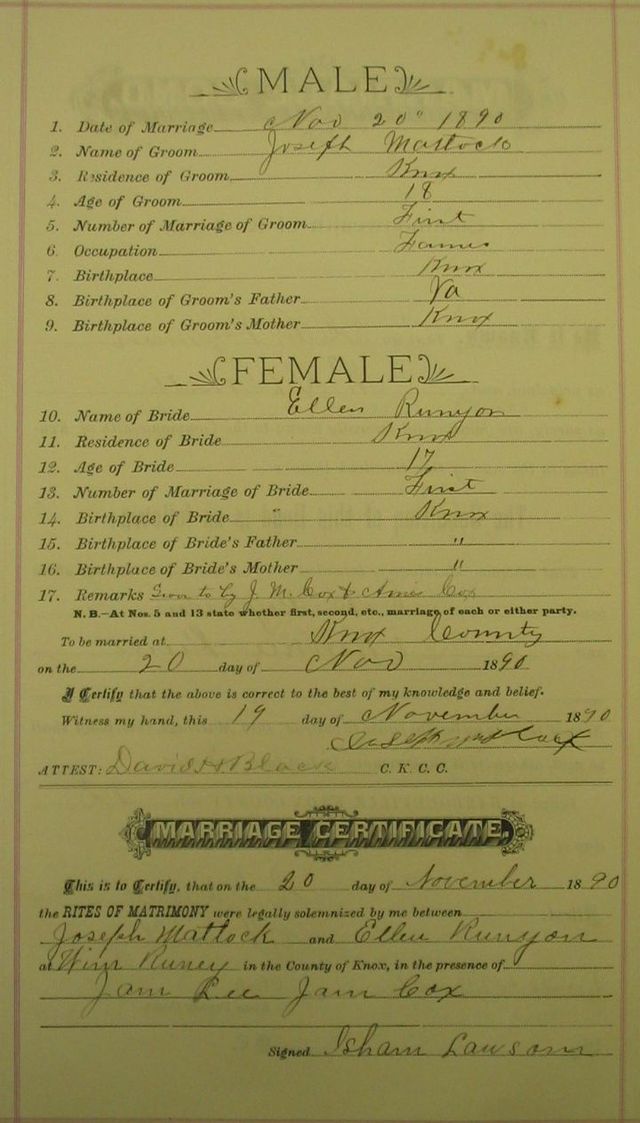 MALE
1. Date of Marriage Nov 20" 1890
2. Name of Groom Joseph Matlock
3. Residence of Groom Knox
4. Age of Groom 18
5. Number of Marriage of Groom First
6. Occupation Farmer
7. Birthplace Knox
8. Birthplace of Groom's Father Va
9. Birthplace of Groom's Mother Knox
FEMALE
10. Name of Bride Ellen Runyon
11. Residence of Bride Knox
12. Age of Bride 17
13. Number of Marriage of Bride First
14. Birthplace of Bride " Knox
15. Birthplace of Bride's Father "
16. Birthplace of Bride's Mother "
17. Remarks to by J. M. Cox & Cox
N. B.—At Nos. 5 and 13 state whether first, second, etc., marriage of each or either party.
To be married at Knox County
on the 20 day of Nov 1890
I Certify that the above is correct to the best of my knowledge and belief.
Witness my hand, this 19 day of November 1890
Joseph Matlock
ATTEST: David H Black C. K. C. C.
MARRIAGE CERTIFICATE.
This is to Certify, that on the 20 day of November 1890
the RITES OF MATRIMONY were legally solemnized by me between
Joseph Matlock and Ellen Runyon
at Wim Runey in the County of Knox, in the presence of
Jam Lee Jam Cox
Signed Isham Lawson